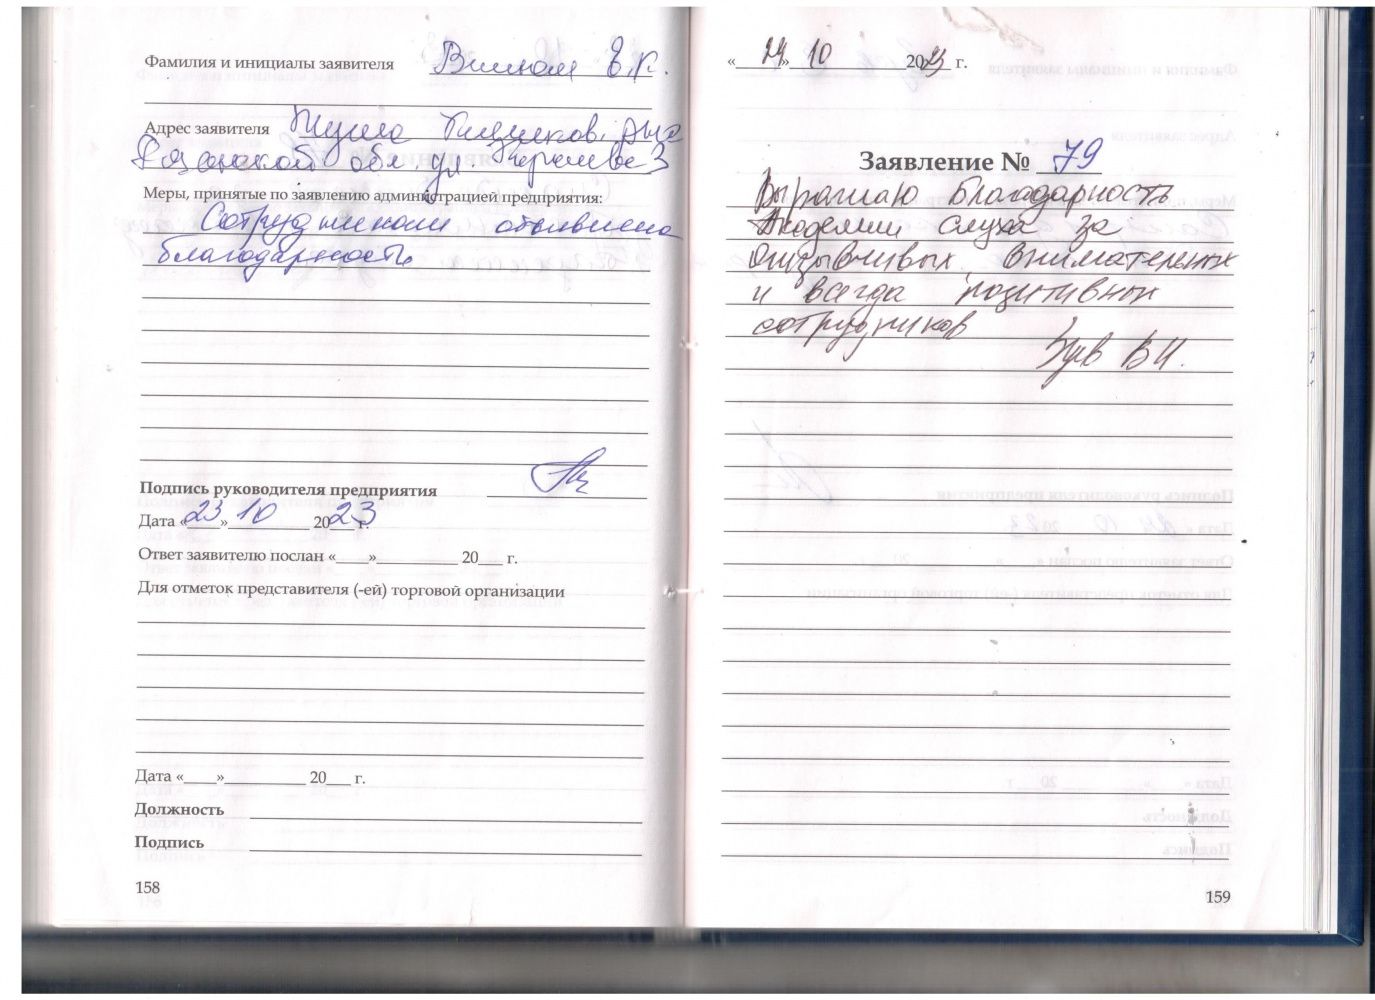 Фамилия и инициалы заявителя Е.К.
Адрес заявителя
обл. ул. 3
Меры, принятые по заявлению администрацией предприятия:
Сотрудникам объявлена
благодарность
Подпись руководителя предприятия
Дата «23» 10 2023 г.
Ответ заявителю послан «____»__________ 20___ г.
Для отметок представителя (-ей) торговой организации
Дата «____»__________ 20___ г.
Должность
Подпись
158
«24» 10 2023 г.
Заявление № 79
Выражаю благодарность
Академии слуха за
отзывчивых, внимательных
и всегда позитивных
сотрудников
В И.
159